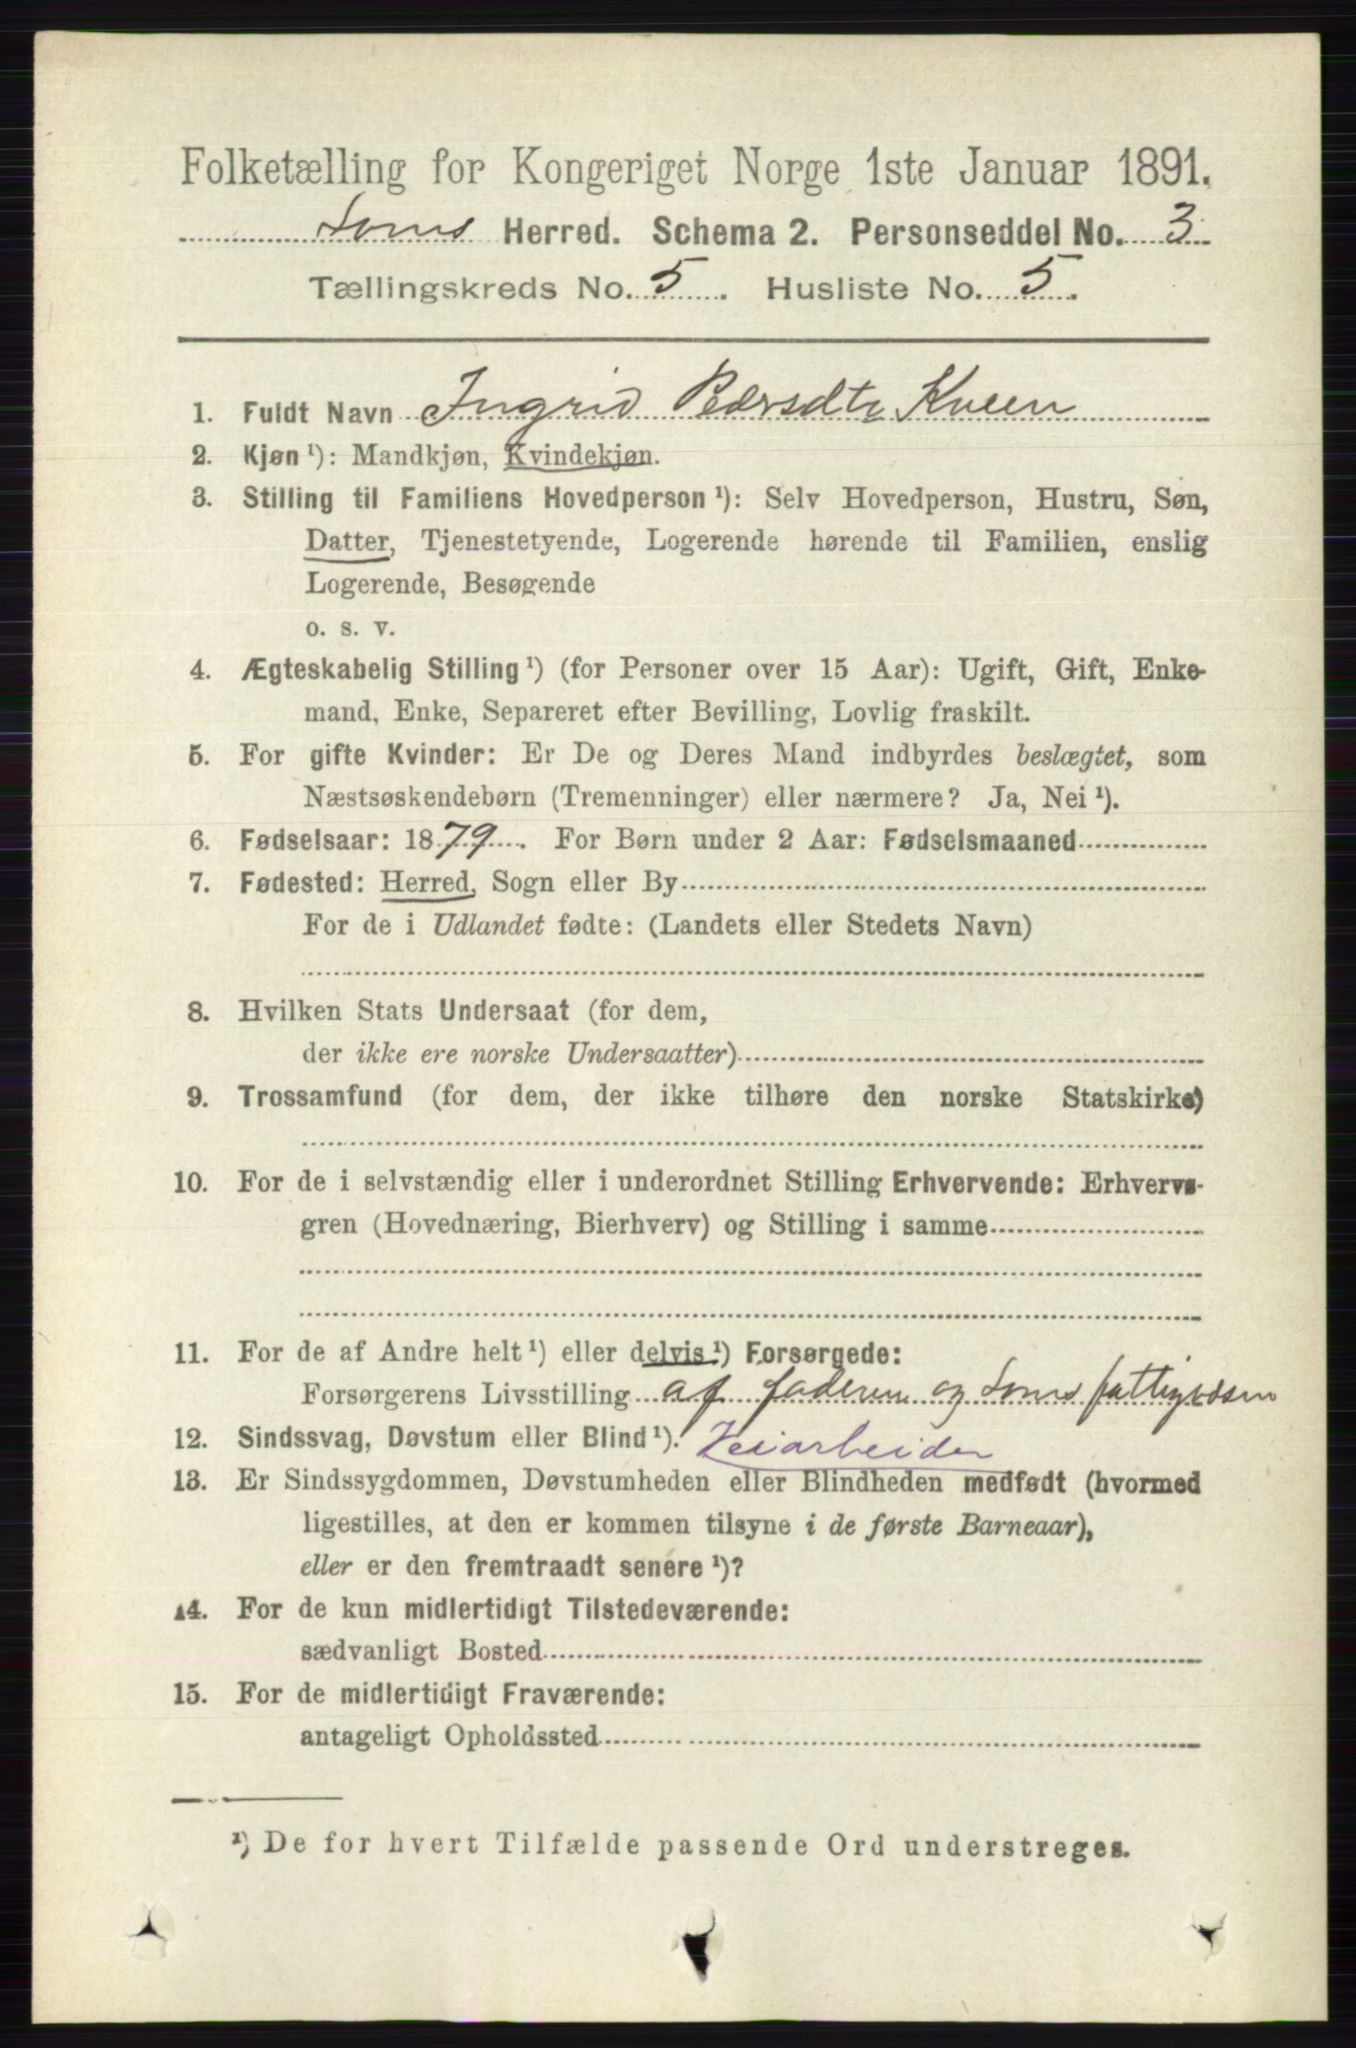 Folketælling for Kongeriget Norge 1ste Januar 1891.
Loms Herred. Schema 2. Personseddel No. 3
Tællingskreds No. 5. Husliste No. 5.
1. Fuldt Navn Ingrid Pedersdtr Kveen
2. Kjøn ¹): Mandkjøn, Kvindekjøn.
3. Stilling til Familiens Hovedperson ¹): Selv Hovedperson, Hustru, Søn,
Datter, Tjenestetyende, Logerende hørende til Familien, enslig
Logerende, Besøgende
o. s. v.
4. Ægteskabelig Stilling ¹) (for Personer over 15 Aar): Ugift, Gift, Enke-
mand, Enke, Separeret efter Bevilling, Lovlig fraskilt.
5. For gifte Kvinder: Er De og Deres Mand indbyrdes beslægtet, som
Næstsøskendebørn (Tremenninger) eller nærmere? Ja, Nei ¹).
6. Fødselsaar: 1879. For Børn under 2 Aar: Fødselsmaaned
7. Fødested: Herred, Sogn eller By
For de i Udlandet fødte: (Landets eller Stedets Navn)
8. Hvilken Stats Undersaat (for dem,
der ikke ere norske Undersaatter)
9. Trossamfund (for dem, der ikke tilhøre den norske Statskirke)
10. For de i selvstændig eller i underordnet Stilling Erhvervende: Erhvervs-
gren (Hovednæring, Bierhverv) og Stilling i samme
11. For de af Andre helt ¹) eller delvis ¹) Forsørgede:
Forsørgerens Livsstilling af faderen og Loms fattigvæsen
12. Sindssvag, Døvstum eller Blind ¹). Veiarbeider
13. Er Sindssygdommen, Døvstumheden eller Blindheden medfødt (hvormed
ligestilles, at den er kommen tilsyne i de første Barneaar),
eller er den fremtraadt senere ¹)?
14. For de kun midlertidigt Tilstedeværende:
sædvanligt Bosted
15. For de midlertidigt Fraværende:
antageligt Opholdssted
¹) De for hvert Tilfælde passende Ord understreges.